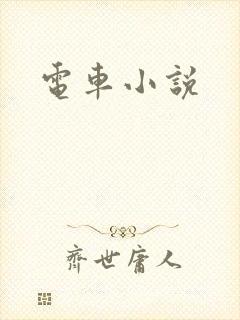 電車小説
齊世庸人